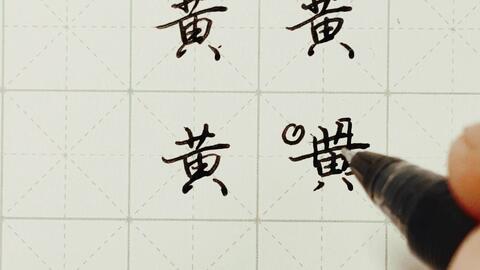 黄 黄
黄 ① 黄